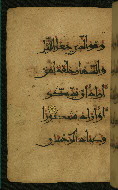 وهو الذي جعل الليل
والنهار خلفة لمن
أراد أن يذكر
أو أراد شكورا
وعباد الرحمن